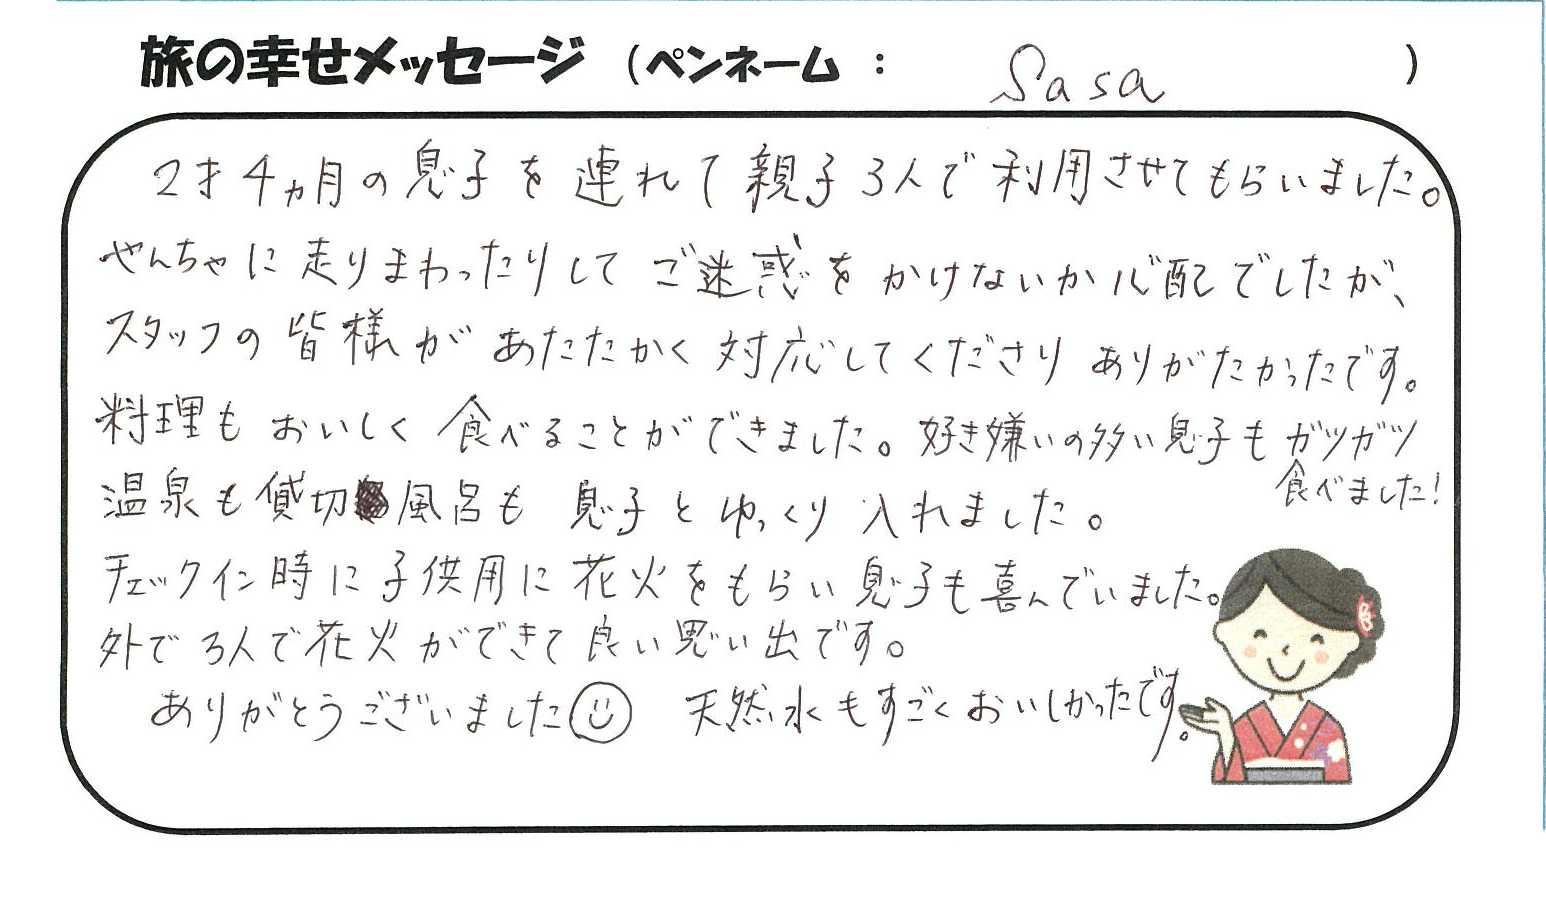 旅の幸せメッセージ （ペンネーム ： Sasa ）
2才4ヵ月の息子を連れて親子3人で利用させてもらいました。
やんちゃに走りまわったりしてご迷惑をかけないか心配でしたが、
スタッフの皆様があたたかく対応してくださりありがたかったです。
料理もおいしく食べることができました。好き嫌いの多い息子もガツガツ
食べました!
温泉も貸切風呂も息子とゆっくり入れました。
チェックイン時に子供用に花火をもらい息子も喜んでいました。
外で3人で花火ができて良い思い出です。
ありがとうございました☺ 天然水もすごくおいしかったです。